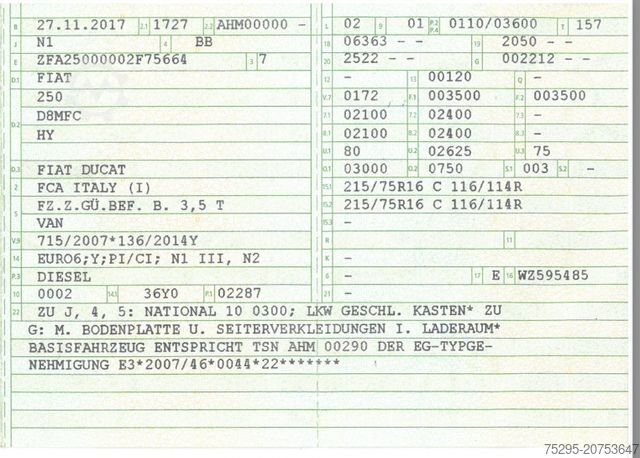 B 27.11.2017 2.1 1727 2.2 AHM00000 -
J N1 4 BB
E ZFA25000002F75664 3 7
D.1 FIAT
250
D.2 D8MFC
HY
D.3 FIAT DUCAT
2 FCA ITALY (I)
5 FZ.Z.GÜ.BEF. B. 3,5 T
VAN
V.9 715/2007*136/2014Y
14 EURO6;Y;PI/CI; N1 III, N2
P.3 DIESEL
10 0002 14.1 36Y0 P.1 02287
L 02 9 01 P.2 P.4 0110/03600 T 157
18 06363 - - 19 2050 - -
20 2522 - - G 002212 - -
12 - 13 00120 Q -
V.7 0172 F.1 003500 F.2 003500
7.1 02100 7.2 02400 7.3 -
8.1 02100 8.2 02400 8.3 -
U.1 80 U.2 02625 U.3 75
O.1 03000 O.2 0750 S.1 003 S.2 -
15.1 215/75R16 C 116/114R
15.2 215/75R16 C 116/114R
15.3 -
R 11
K -
6 - 17 E 16 WZ595485
21 -
22 ZU J, 4, 5: NATIONAL 10 0300; LKW GESCHL. KASTEN* ZU
G: M. BODENPLATTE U. SEITERVERKLEIDUNGEN I. LADERAUM*
BASISFAHRZEUG ENTSPRICHT TSN AHM 00290 DER EG-TYPGE-
NEHMIGUNG E3*2007/46*0044*22*******
75295-20753647